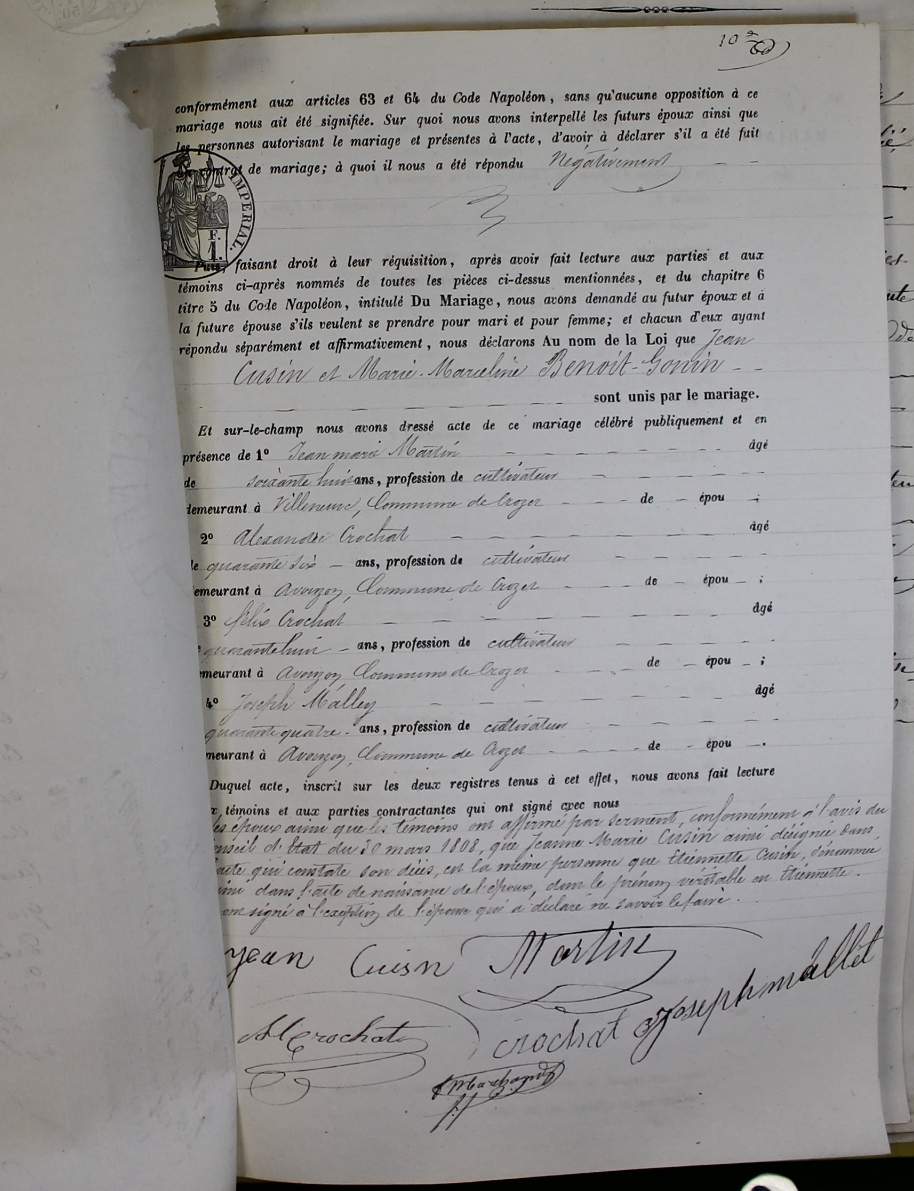 10
conformément aux articles 63 et 64 du Code Napoléon, sans qu'aucune opposition à ce
mariage nous ait été signifiée. Sur quoi nous avons interpellé les futurs époux ainsi que
les personnes autorisant le mariage et présentes à l'acte, d'avoir à déclarer s'il a été fait
contrat de mariage; à quoi il nous a été répondu Négativement
IMPERIAL.
F.
1.
Puis, faisant droit à leur réquisition, après avoir fait lecture aux parties et aux
témoins ci-après nommés de toutes les pièces ci-dessus mentionnées, et du chapitre 6
titre 5 du Code Napoléon, intitulé Du Mariage, nous avons demandé au futur époux et à
la future épouse s'ils veulent se prendre pour mari et pour femme; et chacun d'eux ayant
répondu séparément et affirmativement, nous déclarons Au nom de la Loi que Jean
Cusin et Marie-Marceline Benoit-Gonin
sont unis par le mariage.
Et sur-le-champ nous avons dressé acte de ce mariage célébré publiquement et en
présence de 1º Jean marie Martin âgé
de soixante huit ans, profession de cultivateur
demeurant à Villeneuve, Commune de Crozet de épou ;
2º Alexandre Crochat âgé
de quarante six ans, profession de cultivateur
demeurant à Avouzon, Commune de Crozet de épou ;
3º félix Crochat âgé
quarante huit ans, profession de cultivateur
meurant à Avouzon Commune de Crozet de épou ;
4º Joseph Malley âgé
quarante quatre ans, profession de cultivateur
meurant à Avouzon, Commune de Crozet de épou .
Duquel acte, inscrit sur les deux registres tenus à cet effet, nous avons fait lecture
x témoins et aux parties contractantes qui ont signé avec nous
les époux ainsi que les témoins ont affirmé par serment, conformément à l'avis du
onseil d'Etat du 30 mars 1808, que Jeanne Marie Cusin ainsi désignée dans
acte qui constate son décès, est la même personne que Etiennette Cusin, dénommée
ainsi dans l'acte de naissance de l'époux, dont le prénom véritable est Etiennette.
ont signé à l'exception de l'épouse qui a déclaré ne savoir le faire.
Jean Cuisn Martin
Al Crochat crochat Joseph mallet